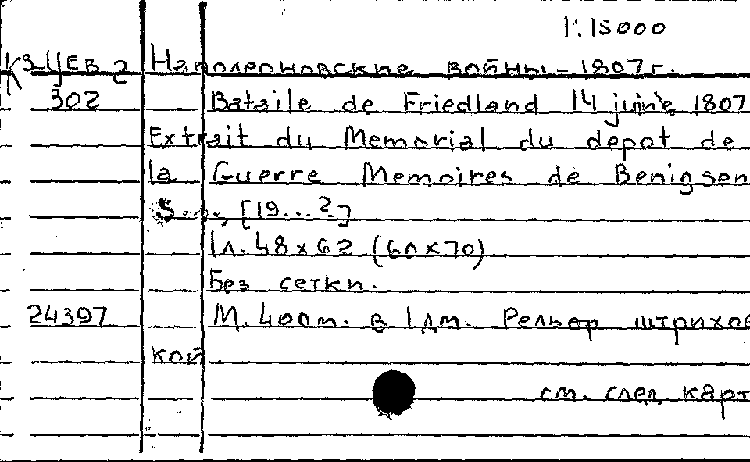 1:15000
К3-ЦЕВ 2 Наполеоновские войны - 1807 г.
302 Bataile de Friedland 14 juine 1807
Extrait du Memorial du depot de
la Guerre Memoires de Benigsen
S. [19..?]
1 л. 48 x 62 (60 x 70)
Без сетки.
24397 М. 400 т. в 1 дм. Рельеф штрихов
кой
см. след карт